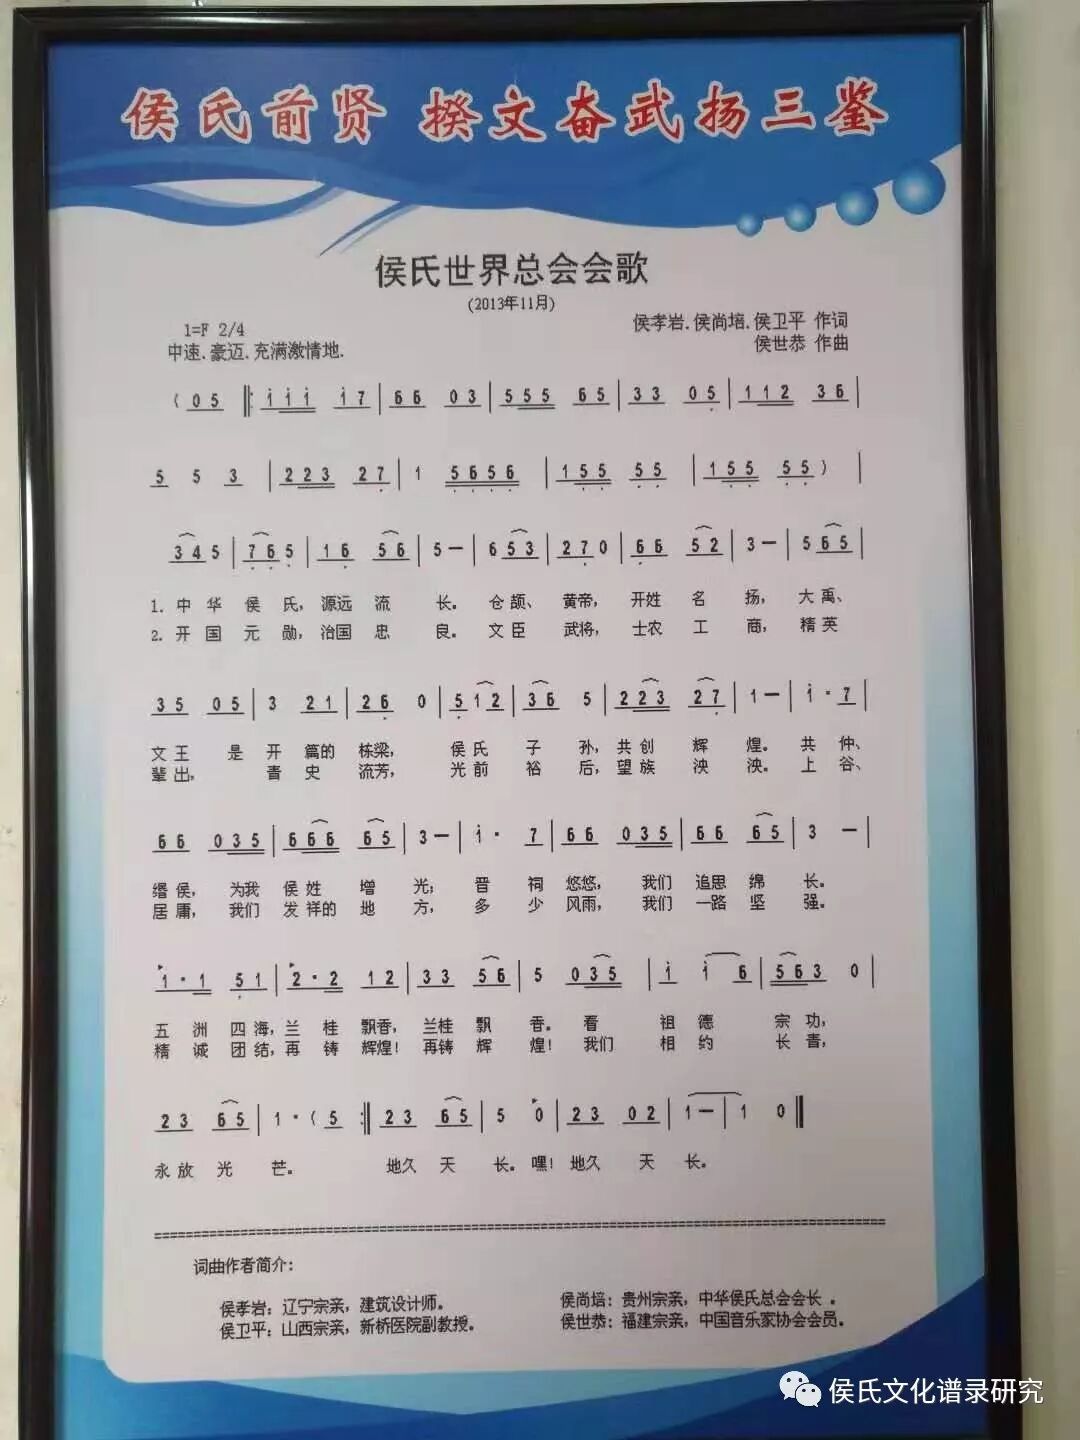 侯氏前贤 揆文奋武扬三鉴
侯氏世界总会会歌
(2013年11月)
1=F 2/4
侯孝岩.侯尚培.侯卫平 作词
中速.豪迈.充满激情地.
侯世恭 作曲
( 0 5 ‖: i i i i 7 | 6 6 0 3 | 5 5 5 6 5 | 3 3 0 5 | 1 1 2 3 6 |
5 5 3 | 2 2 3 2 7 | 1 5 6 5 6 | 1 5 5 5 5 | 1 5 5 5 5 ) |
3 4 5 | 7 6 5 | 1 6 5 6 | 5 — | 6 5 3 | 2 7 0 | 6 6 5 2 | 3 — | 5 6 5 |
1. 中 华 侯 氏, 源远 流 长。 仓颉、 黄帝, 开姓 名 扬, 大 禹、
2. 开 国 元 勋, 治国 忠 良。 文臣 武将, 士农 工 商, 精 英
3 5 0 5 | 3 2 1 | 2 6 0 | 5 1 2 | 3 6 5 | 2 2 3 2 7 | 1 — | i · 7 |
文 王 是 开 篇的 栋梁, 侯 氏 子 孙, 共 创 辉 煌。 共 仲、
辈 出, 青 史 流芳, 光 前 裕 后, 望 族 泱 泱。 上 谷、
6 6 0 3 5 | 6 6 6 6 5 | 3 — | i · 7 | 6 6 0 3 5 | 6 6 6 5 | 3 — |
缗 侯, 为我 侯 姓 增 光; 晋 祠 悠悠, 我们 追思 绵 长。
居 庸, 我们 发 祥的 地 方, 多 少 风雨, 我们 一路 坚 强。
1 · 1 5 1 | 2 · 2 1 2 | 3 3 5 6 | 5 0 3 5 | i i 6 | 5 6 3 0 |
五 洲 四 海, 兰 桂 飘香, 兰桂 飘 香。 看 祖 德 宗 功,
精 诚 团 结, 再 铸 辉煌! 再铸 辉 煌! 我们 相 约 长 青,
2 3 6 5 | 1 · ( 5 :‖ 2 3 6 5 | 5 0 | 2 3 0 2 | 1 — | 1 0 ‖
永 放 光 芒。 地久 天 长。嘿! 地久 天 长。
================================================
词曲作者简介:
侯孝岩: 辽宁宗亲, 建筑设计师。
侯尚培: 贵州宗亲, 中华侯氏总会会长 。
侯卫平: 山西宗亲, 新桥医院副教授。
侯世恭: 福建宗亲, 中国音乐家协会会员。
侯氏文化谱录研究